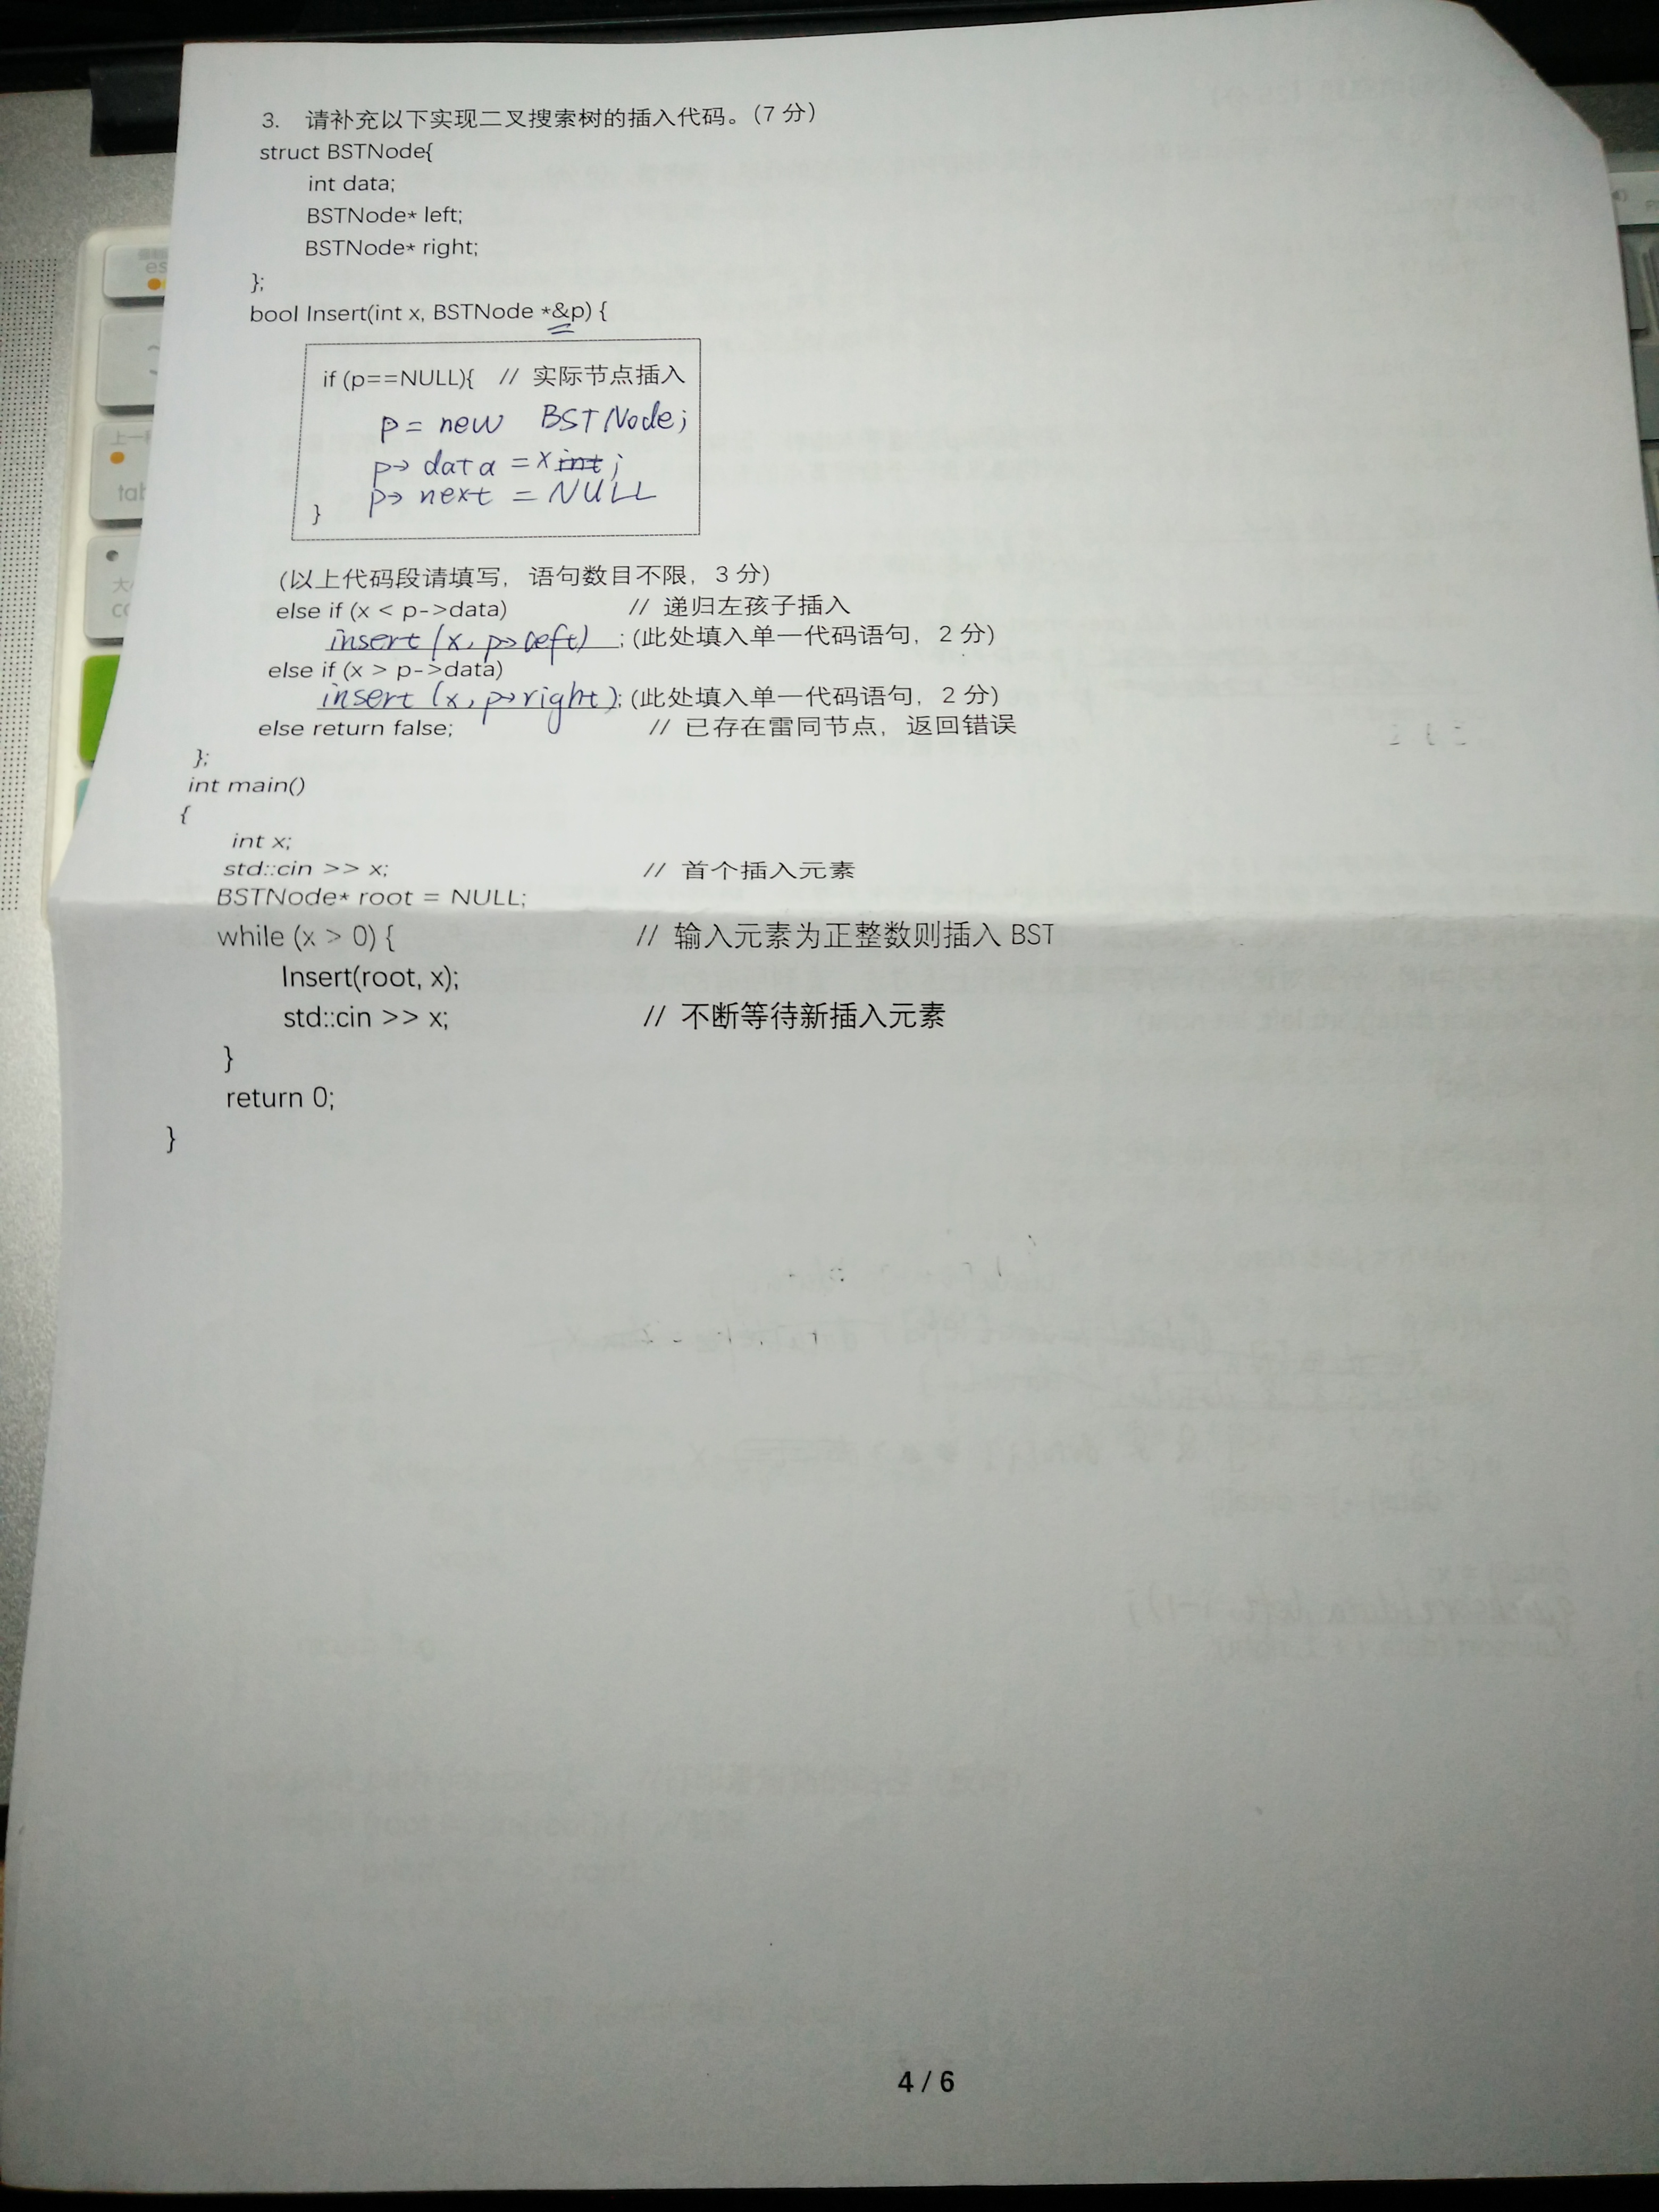 3. 请补充以下实现二叉搜索树的插入代码。(7 分)
struct BSTNode{
int data;
BSTNode* left;
BSTNode* right;
};
bool Insert(int x, BSTNode *&p) {
if (p==NULL){ // 实际节点插入
p = new BSTNode;
p→ data = x int ;
p→ next = NULL
}
(以上代码段请填写，语句数目不限，3 分)
else if (x < p->data) // 递归左孩子插入
insert (x, p→left) ; (此处填入单一代码语句，2 分)
else if (x > p->data)
insert (x, p→right) ; (此处填入单一代码语句，2 分)
else return false; // 已存在雷同节点，返回错误
};
int main()
{
int x;
std::cin >> x; // 首个插入元素
BSTNode* root = NULL;
while (x > 0) { // 输入元素为正整数则插入 BST
Insert(root, x);
std::cin >> x; // 不断等待新插入元素
}
return 0;
}
4 / 6